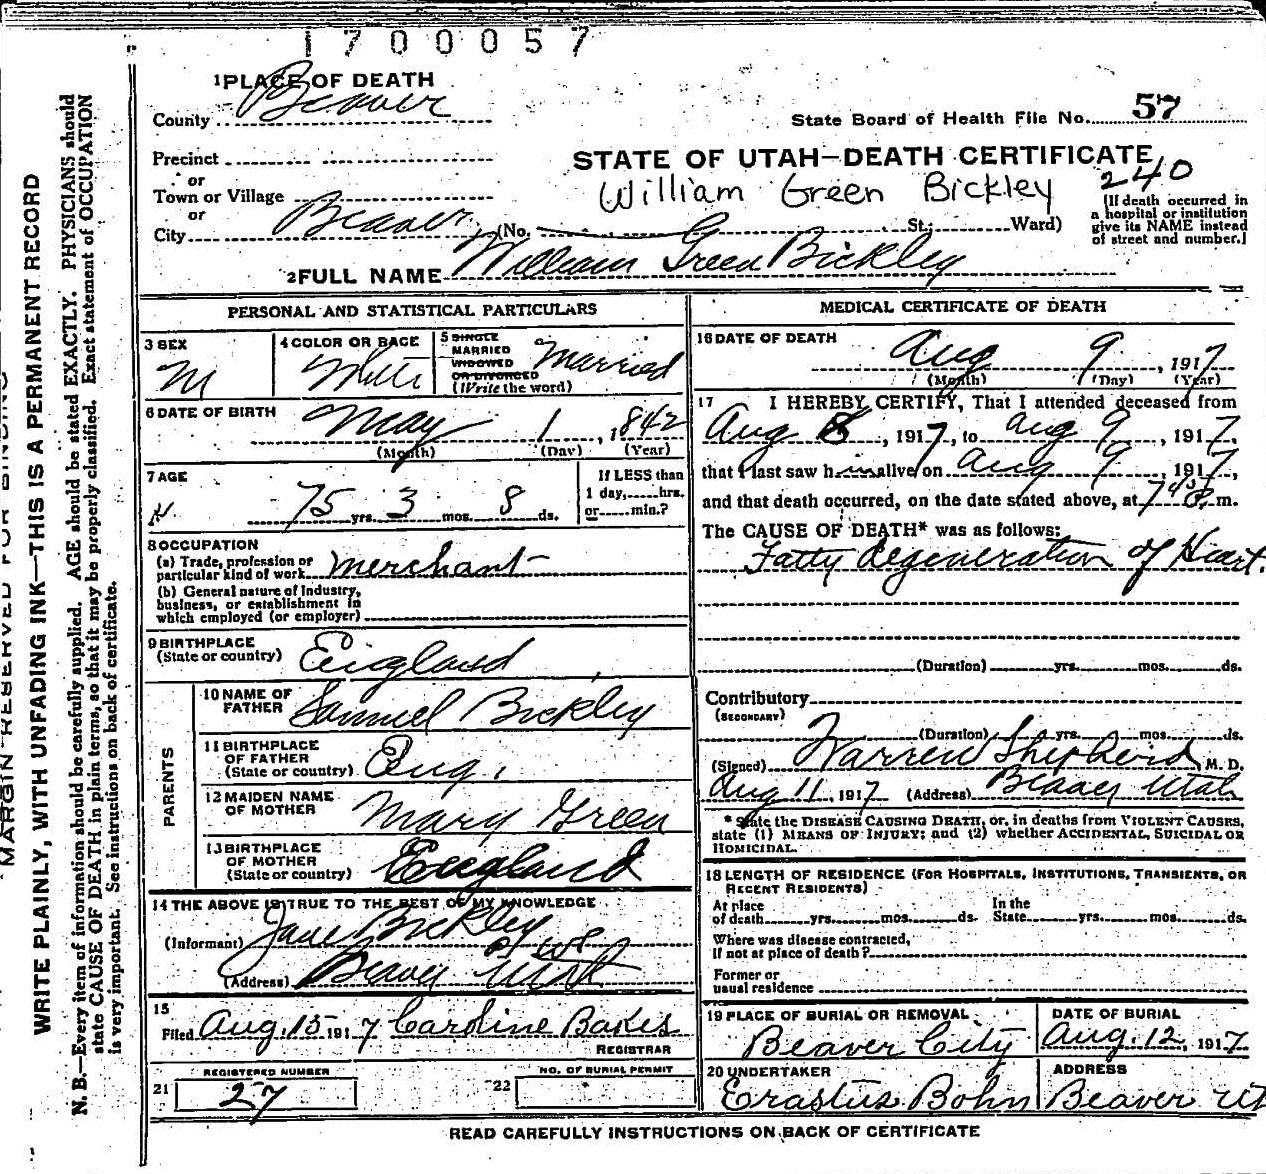 1700057
1 PLACE OF DEATH
County Beaver
State Board of Health File No. 57
Precinct
or
Town or Village
or
City Beaver (No. St.; Ward)
STATE OF UTAH—DEATH CERTIFICATE
William Green Bickley
240
[If death occurred in
a hospital or institution
give its NAME instead
of street and number.]
2 FULL NAME William Green Bickley
PERSONAL AND STATISTICAL PARTICULARS
3 SEX
M
4 COLOR OR RACE
White
5 SINGLE
MARRIED
WIDOWED
OR DIVORCED
(Write the word)
Married
6 DATE OF BIRTH
May 1, 1842
(Month) (Day) (Year)
7 AGE
75 yrs. 3 mos. 8 ds.
If LESS than
1 day, hrs.
or min.?
8 OCCUPATION
(a) Trade, profession or
particular kind of work Merchant
(b) General nature of Industry,
business, or establishment in
which employed (or employer)
9 BIRTHPLACE
(State or country) England
PARENTS
10 NAME OF
FATHER Samuel Bickley
11 BIRTHPLACE
OF FATHER
(State or country) Eng.
12 MAIDEN NAME
OF MOTHER Mary Green
13 BIRTHPLACE
OF MOTHER
(State or country) England
14 THE ABOVE IS TRUE TO THE BEST OF MY KNOWLEDGE
(Informant) Jane Bickley
(Address) Beaver Utah
15
Filed Aug. 15 1917 Caroline Bakes
REGISTRAR
REGISTERED NUMBER
21 27
NO. OF BURIAL PERMIT
22
MEDICAL CERTIFICATE OF DEATH
16 DATE OF DEATH
Aug 9, 1917
(Month) (Day) (Year)
17 I HEREBY CERTIFY, That I attended deceased from
Aug 8, 1917, to Aug 9, 1917,
that I last saw him alive on Aug 9, 1917,
and that death occurred, on the date stated above, at 7 m.
The CAUSE OF DEATH* was as follows:
Fatty degeneration of Heart.
(Duration) yrs. mos. ds.
Contributory
(SECONDARY)
(Duration) yrs. mos. ds.
(Signed) Warren Shepherd, M. D.
Aug 11, 1917 (Address) Beaver Utah
* State the DISEASE CAUSING DEATH, or, in deaths from VIOLENT CAUSES,
state (1) MEANS OF INJURY; and (2) whether ACCIDENTAL, SUICIDAL OR
HOMICIDAL.
18 LENGTH OF RESIDENCE (FOR HOSPITALS, INSTITUTIONS, TRANSIENTS, OR
RECENT RESIDENTS)
At place
of death yrs. mos. ds.
In the
State yrs. mos. ds.
Where was disease contracted,
If not at place of death?
Former or
usual residence
19 PLACE OF BURIAL OR REMOVAL
Beaver City
DATE OF BURIAL
Aug. 12, 1917
20 UNDERTAKER
Erastus Bohn
ADDRESS
Beaver Ut
READ CAREFULLY INSTRUCTIONS ON BACK OF CERTIFICATE
MARGIN RESERVED FOR BINDING
WRITE PLAINLY, WITH UNFADING INK—THIS IS A PERMANENT RECORD
N. B.—Every item of information should be carefully supplied. AGE should be stated EXACTLY. PHYSICIANS should
state CAUSE OF DEATH in plain terms, so that it may be properly classified. Exact statement of OCCUPATION
is very important. See instructions on back of certificate.